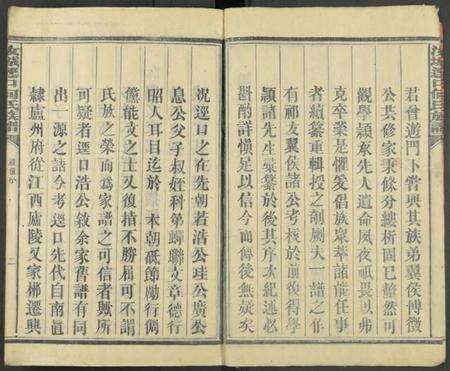 君曾遊門下嘗與其族弟翼侯博徵
公共修家乘條分縷析固已犂然可
觀學頴承先人遺命夙夜祗畏以弗
克卒業是懼爰倡族衆萃諸能任事
者續纂重輯授之剞劂夫一譜之作
有祁友翼侯諸公考核於前復得學
頴諸先生彙纂於後其序次紀述必
斟酌詳愼足以信今而傳後無疑矣
况逕口之在先朝若浩公珪公廣公
息公父子叔姪科第蟬聯文章德行
昭人耳目迄於本朝砥節勵行倜
儻能文之士又復指不勝屈可不謂
氏族之榮而爲家譜之可信者歟所
可疑者逕口浩公敘余家舊譜有同
出一源之語今考逕口先代自南直
隸廬州府從江西廬陵又家郴遷興